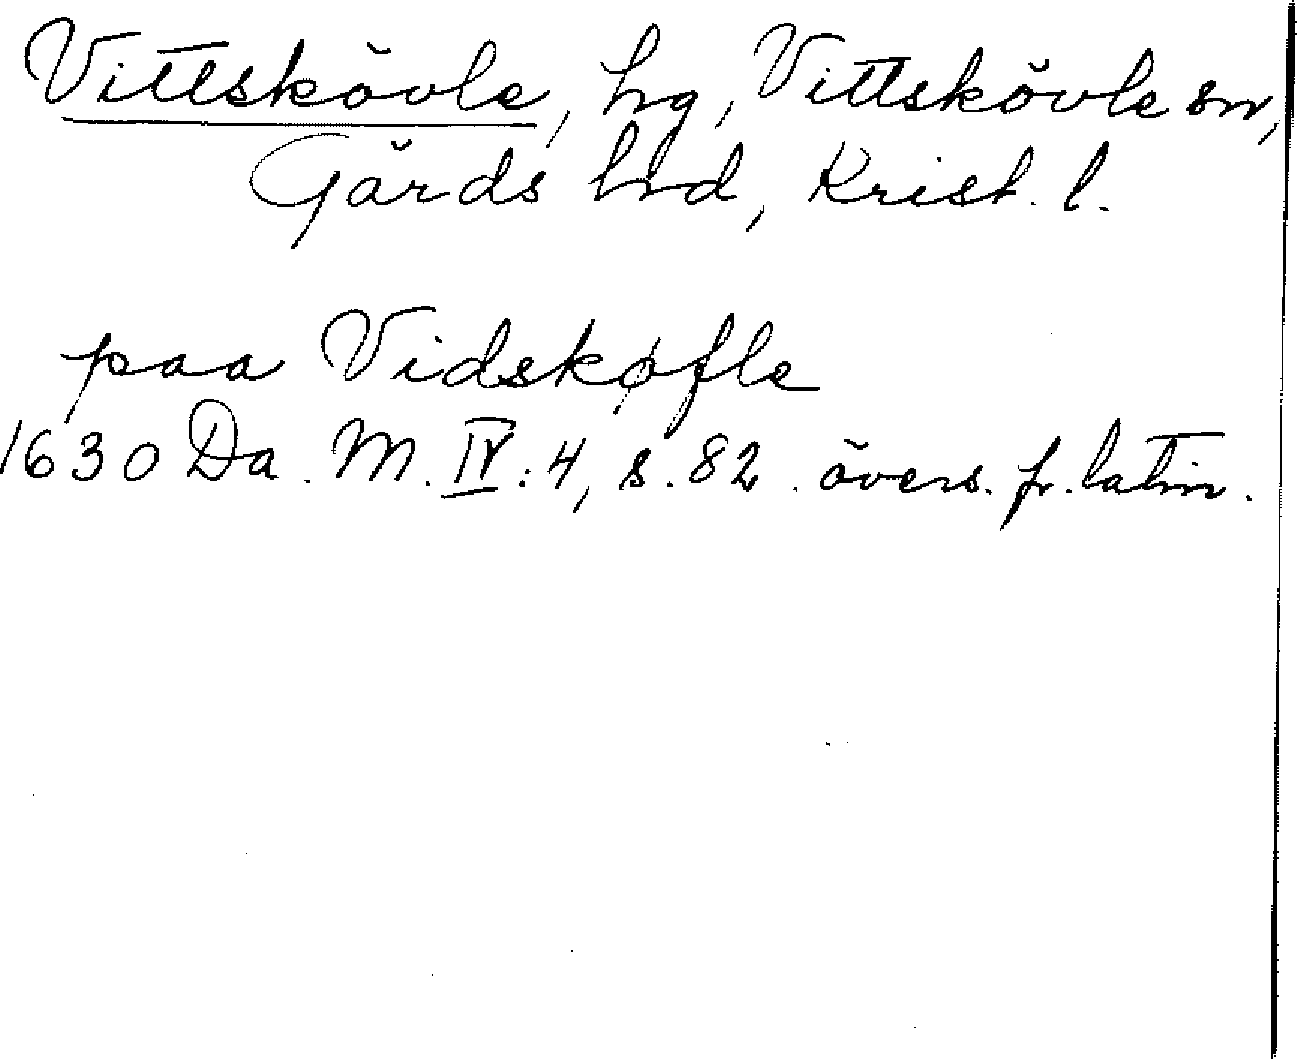 Vittskövle, hg, Vittskövle sn,
Gärds hd, Krist. l.
paa Vidskøfle
1630 Da. M. IV:4, s. 82. övers. fr. latin.